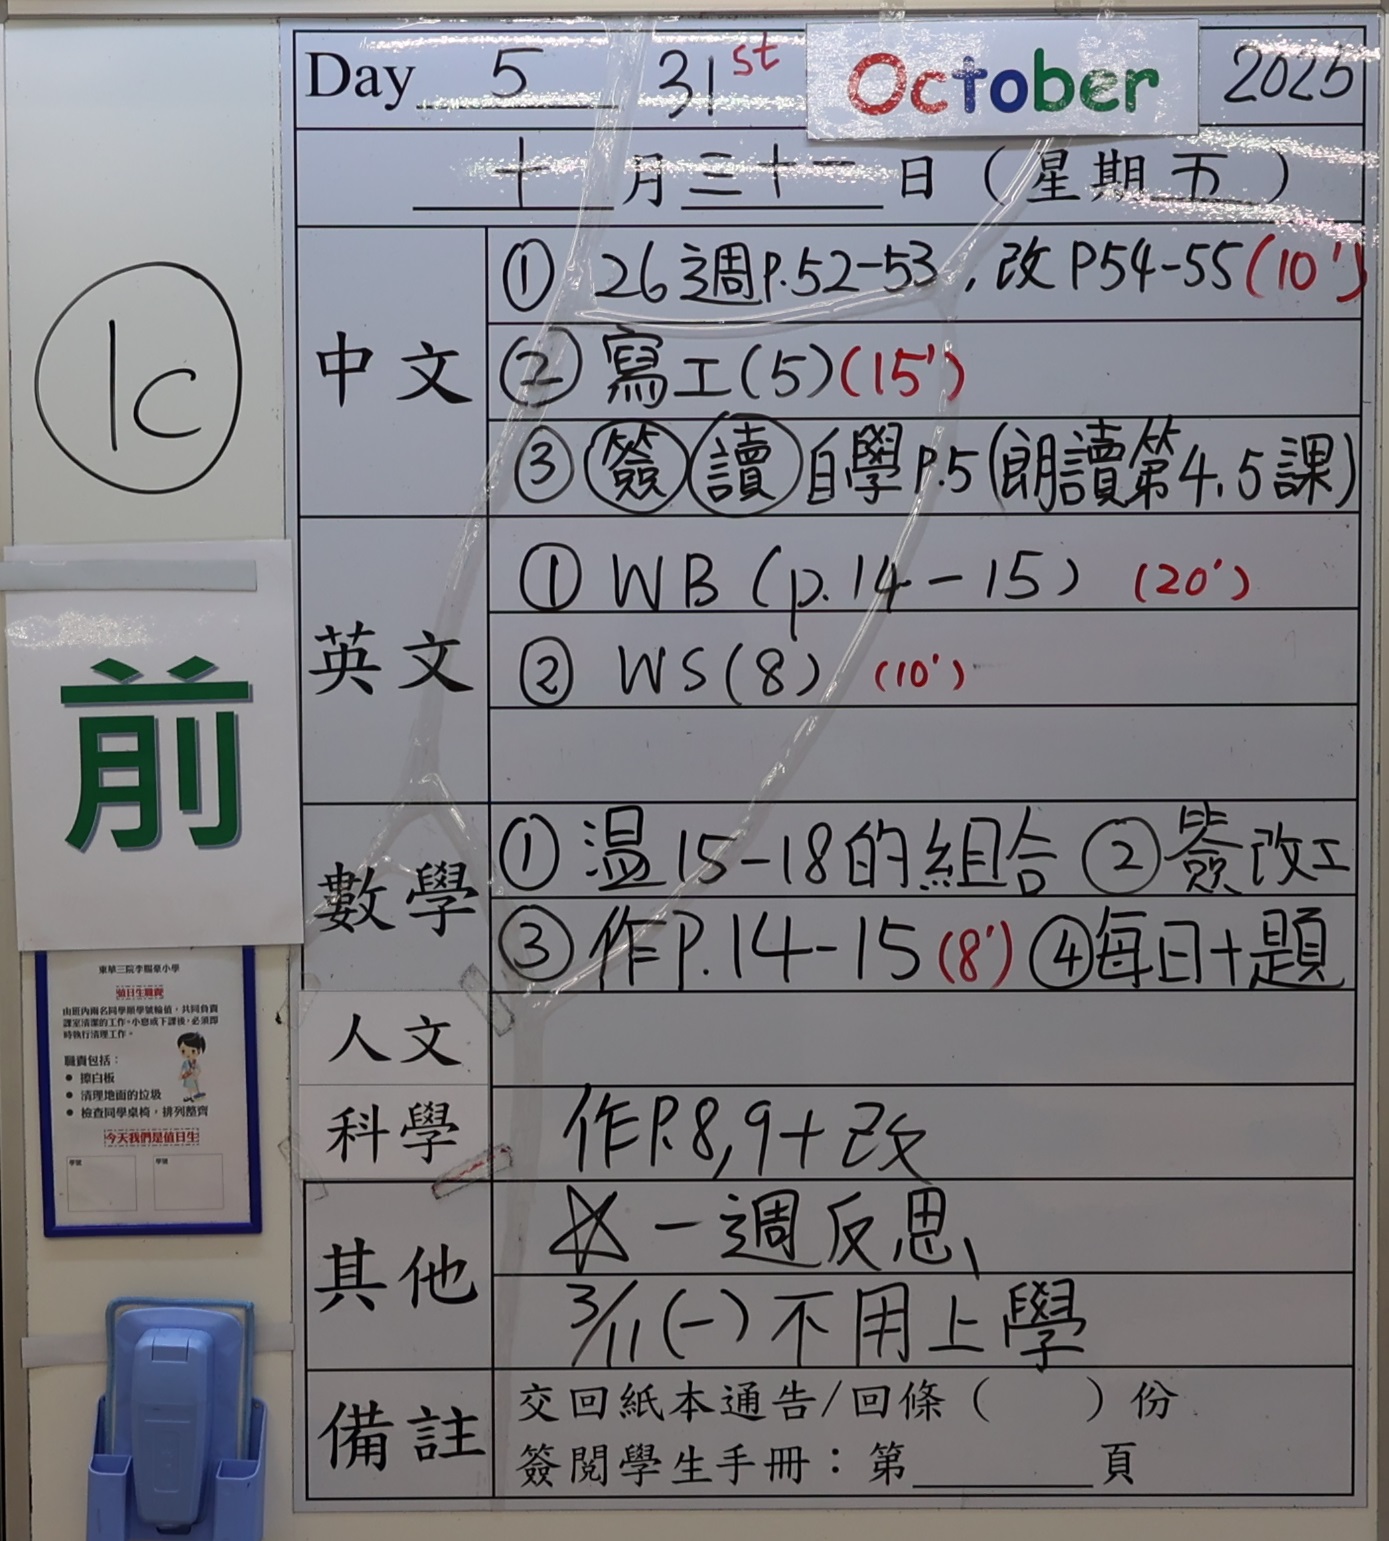 Day 5 31st October 2025
十 月 三十一 日（星期 五 ）
1C
中文
① 26週P.52-53，改P54-55(10')
② 寫工(5)(15')
③ 簽 讀 自學P.5(朗讀第4,5課)
英文
① WB (p.14-15) (20')
② WS(8) (10')
前
數學
① 温15-18的組合 ② 簽改工
③ 作P.14-15(8') ④每日十題
人文
科學
作P.8,9+改
其他
☆一週反思
3/11(一)不用上學
備註
交回紙本通告/回條（ ）份
簽閱學生手冊：第____頁
東華三院李賜豪小學
值日生職責
由班內兩名同學順學號輪值，共同負責
課室清潔的工作。小息或下課後，必須即
時執行清理工作。
職責包括：
● 擦白板
● 清理地面的垃圾
● 檢查同學桌椅，排列整齊
今天我們是值日生
學號 學號